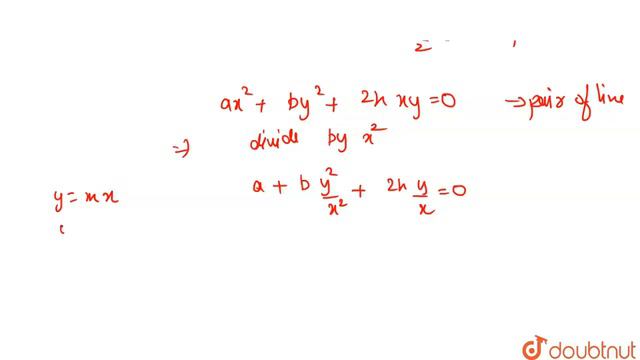 ax² + by² + 2h xy = 0 → pair of line
⇒ divide by x²
a + b y²/x² + 2h y/x = 0
y = mx
doubtnut